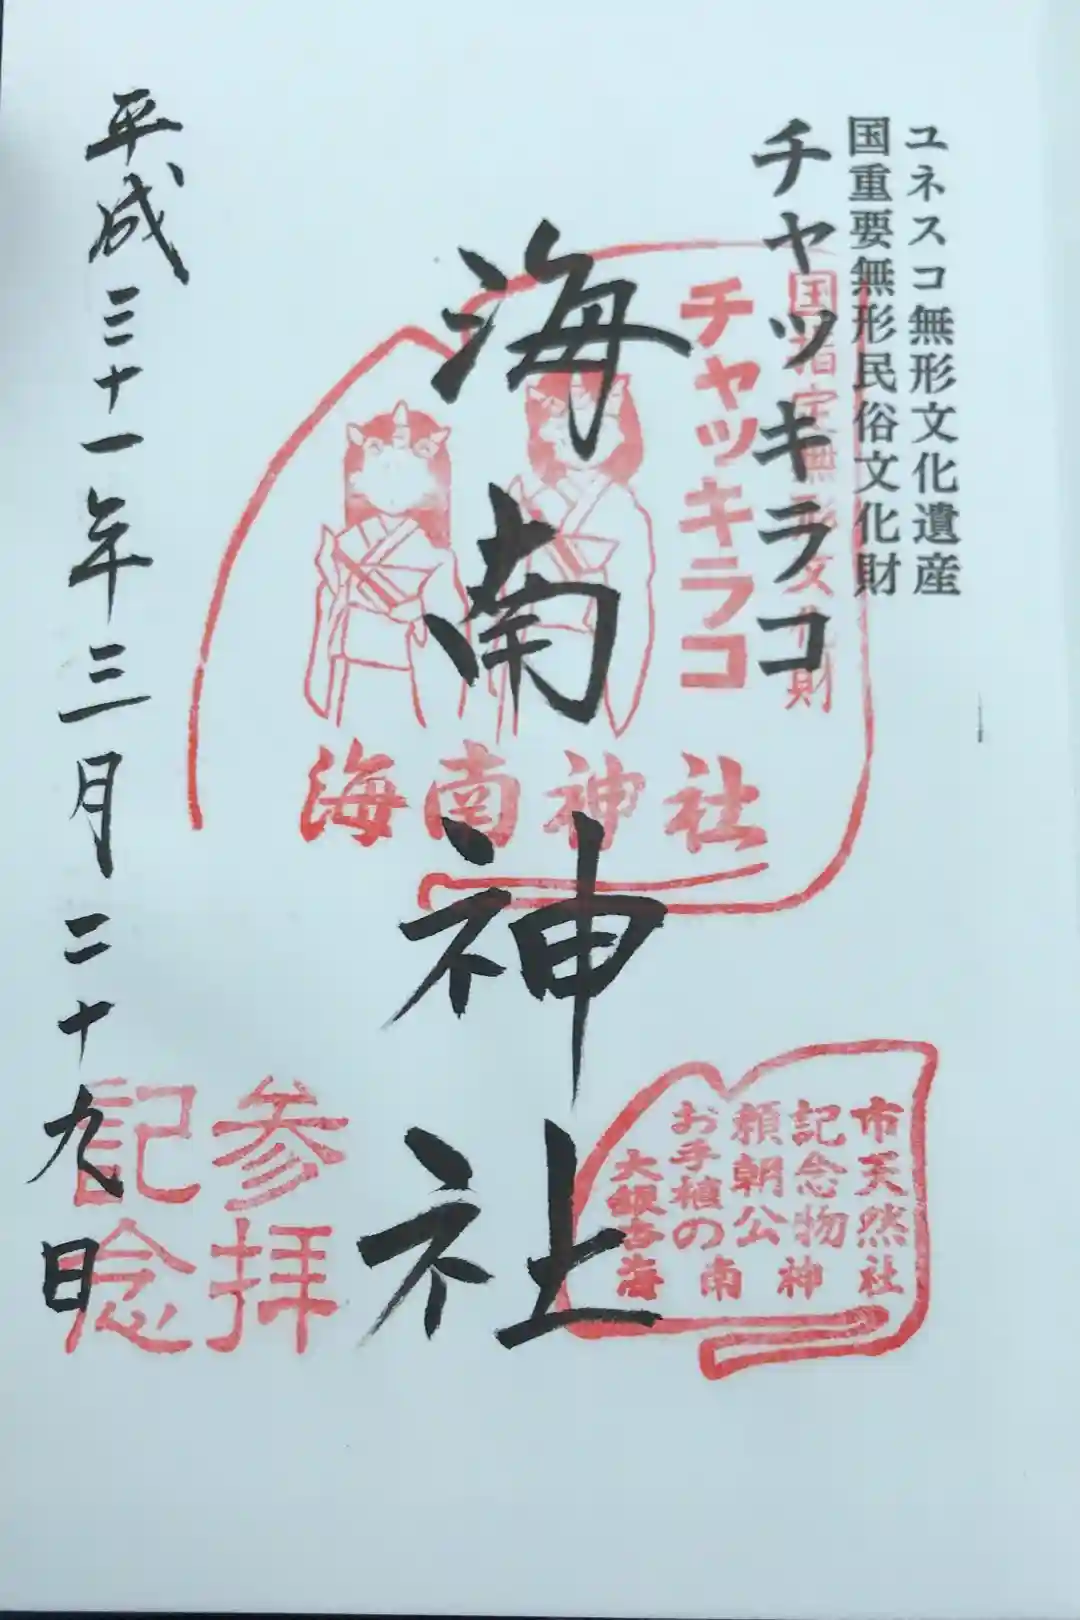 ユネスコ無形文化遺産
国重要無形民俗文化財
チャッキラコ
国指定無形文化財
チャッキラコ
海南神社
海南神社
市天然
記念物
頼朝公
お手植の
大銀杏
海南神社
参拝
記念
平成三十一年三月二十九日